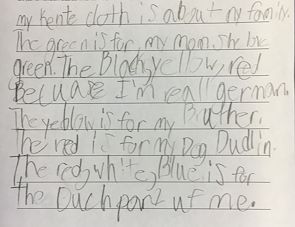 my kente cloth is about my family.
The green is for, my mom. She love
green. The Black, yellow, red
Becuase I'm reall german.
The yeblow is for my Bruther.
The red is for my Dog Dudlin.
The red, white, Blue, is for
The Duch part uf me.